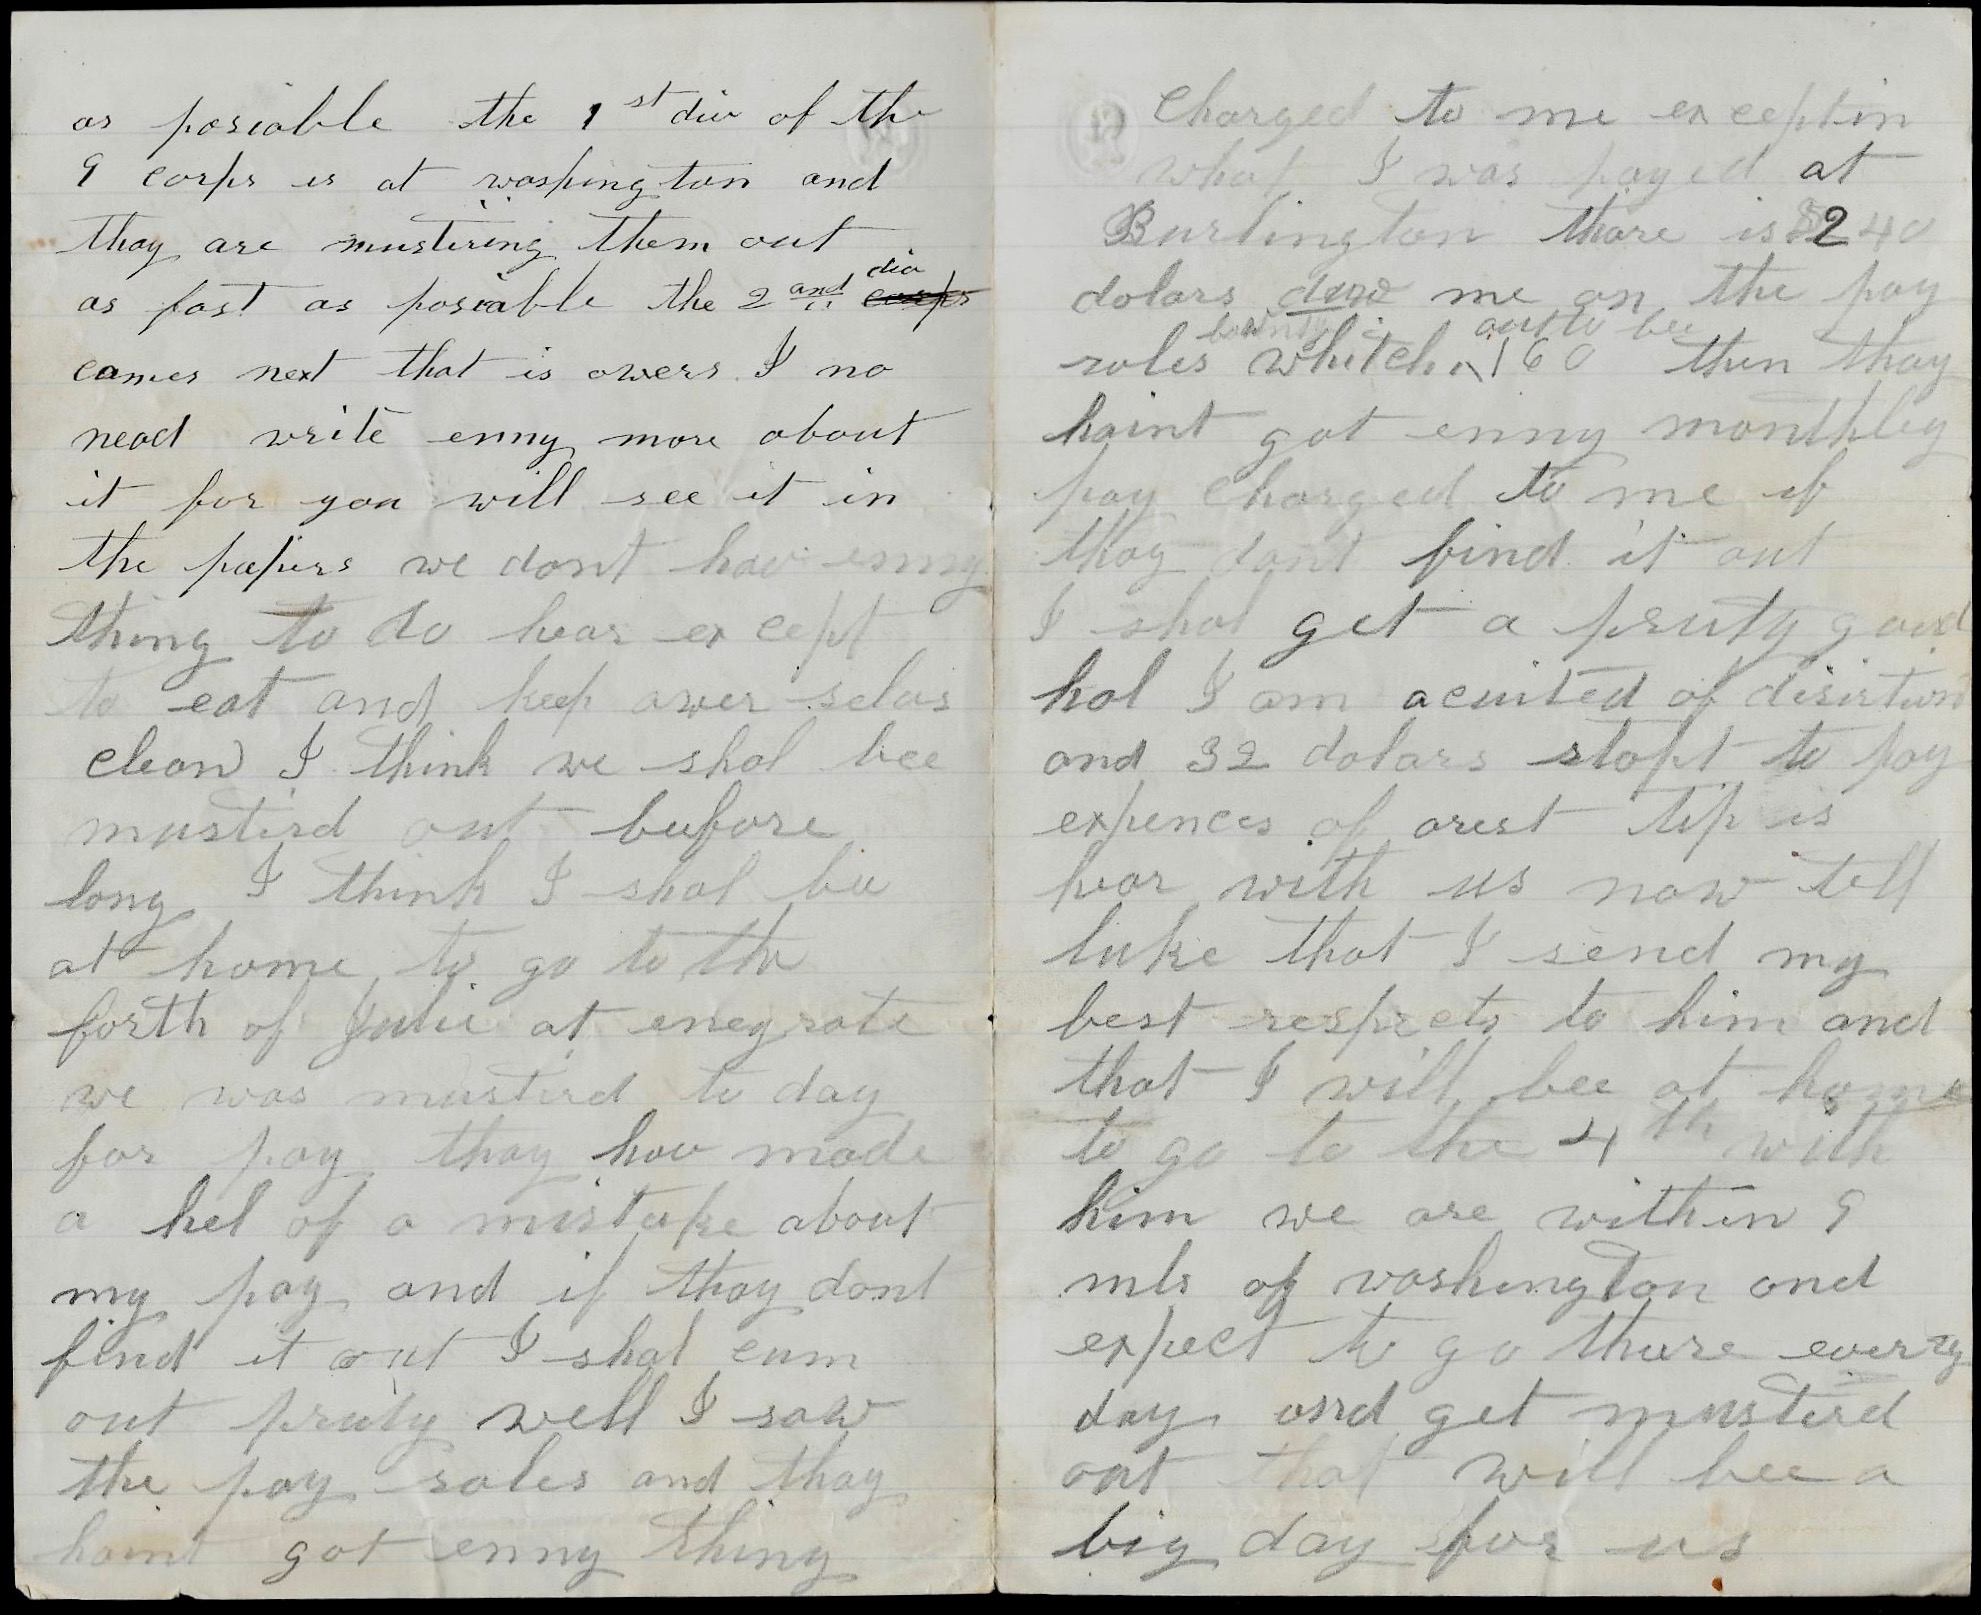 as posiable the 1st div of the
9 corps is at waspington and
thay are mustering them out
as fast as posiable the 2 and div corps
comes next that is owers I no
nead write enny more about
it for you will see it in
the papers we dont hav enny
thing to do hear except
to eat and keep ower selvs
clean I think we shal bee
mustird out beefore
long I think I shal bee
at home to go to the
forth of Julie at enegrate
we was mustird to day
for pay thay hav made
a hel of a mistake about
my pay and if thay dont
find it out I shal cum
out pruty well I saw
the pay roles and thay
haint got enny thing
Charged to me exceptin
what I was payed at
Burlington thare is 240
dolars due me on the pay
bounty outto bee
roles whitch 160 then thay
haint got enny monthley
pay charged to me if
thay dont find it out
I shal get a pruty good
hol I am acuited of disirtion
and 32 dolars stopt to pay
expences of arest tip is
hear with us now tell
luke that I send my
best respects to him and
that I will bee at home
to go to the 4th with
him we are within 9
mls of washington and
expect to go there every
day and get mustird
out that will bee a
big day for us